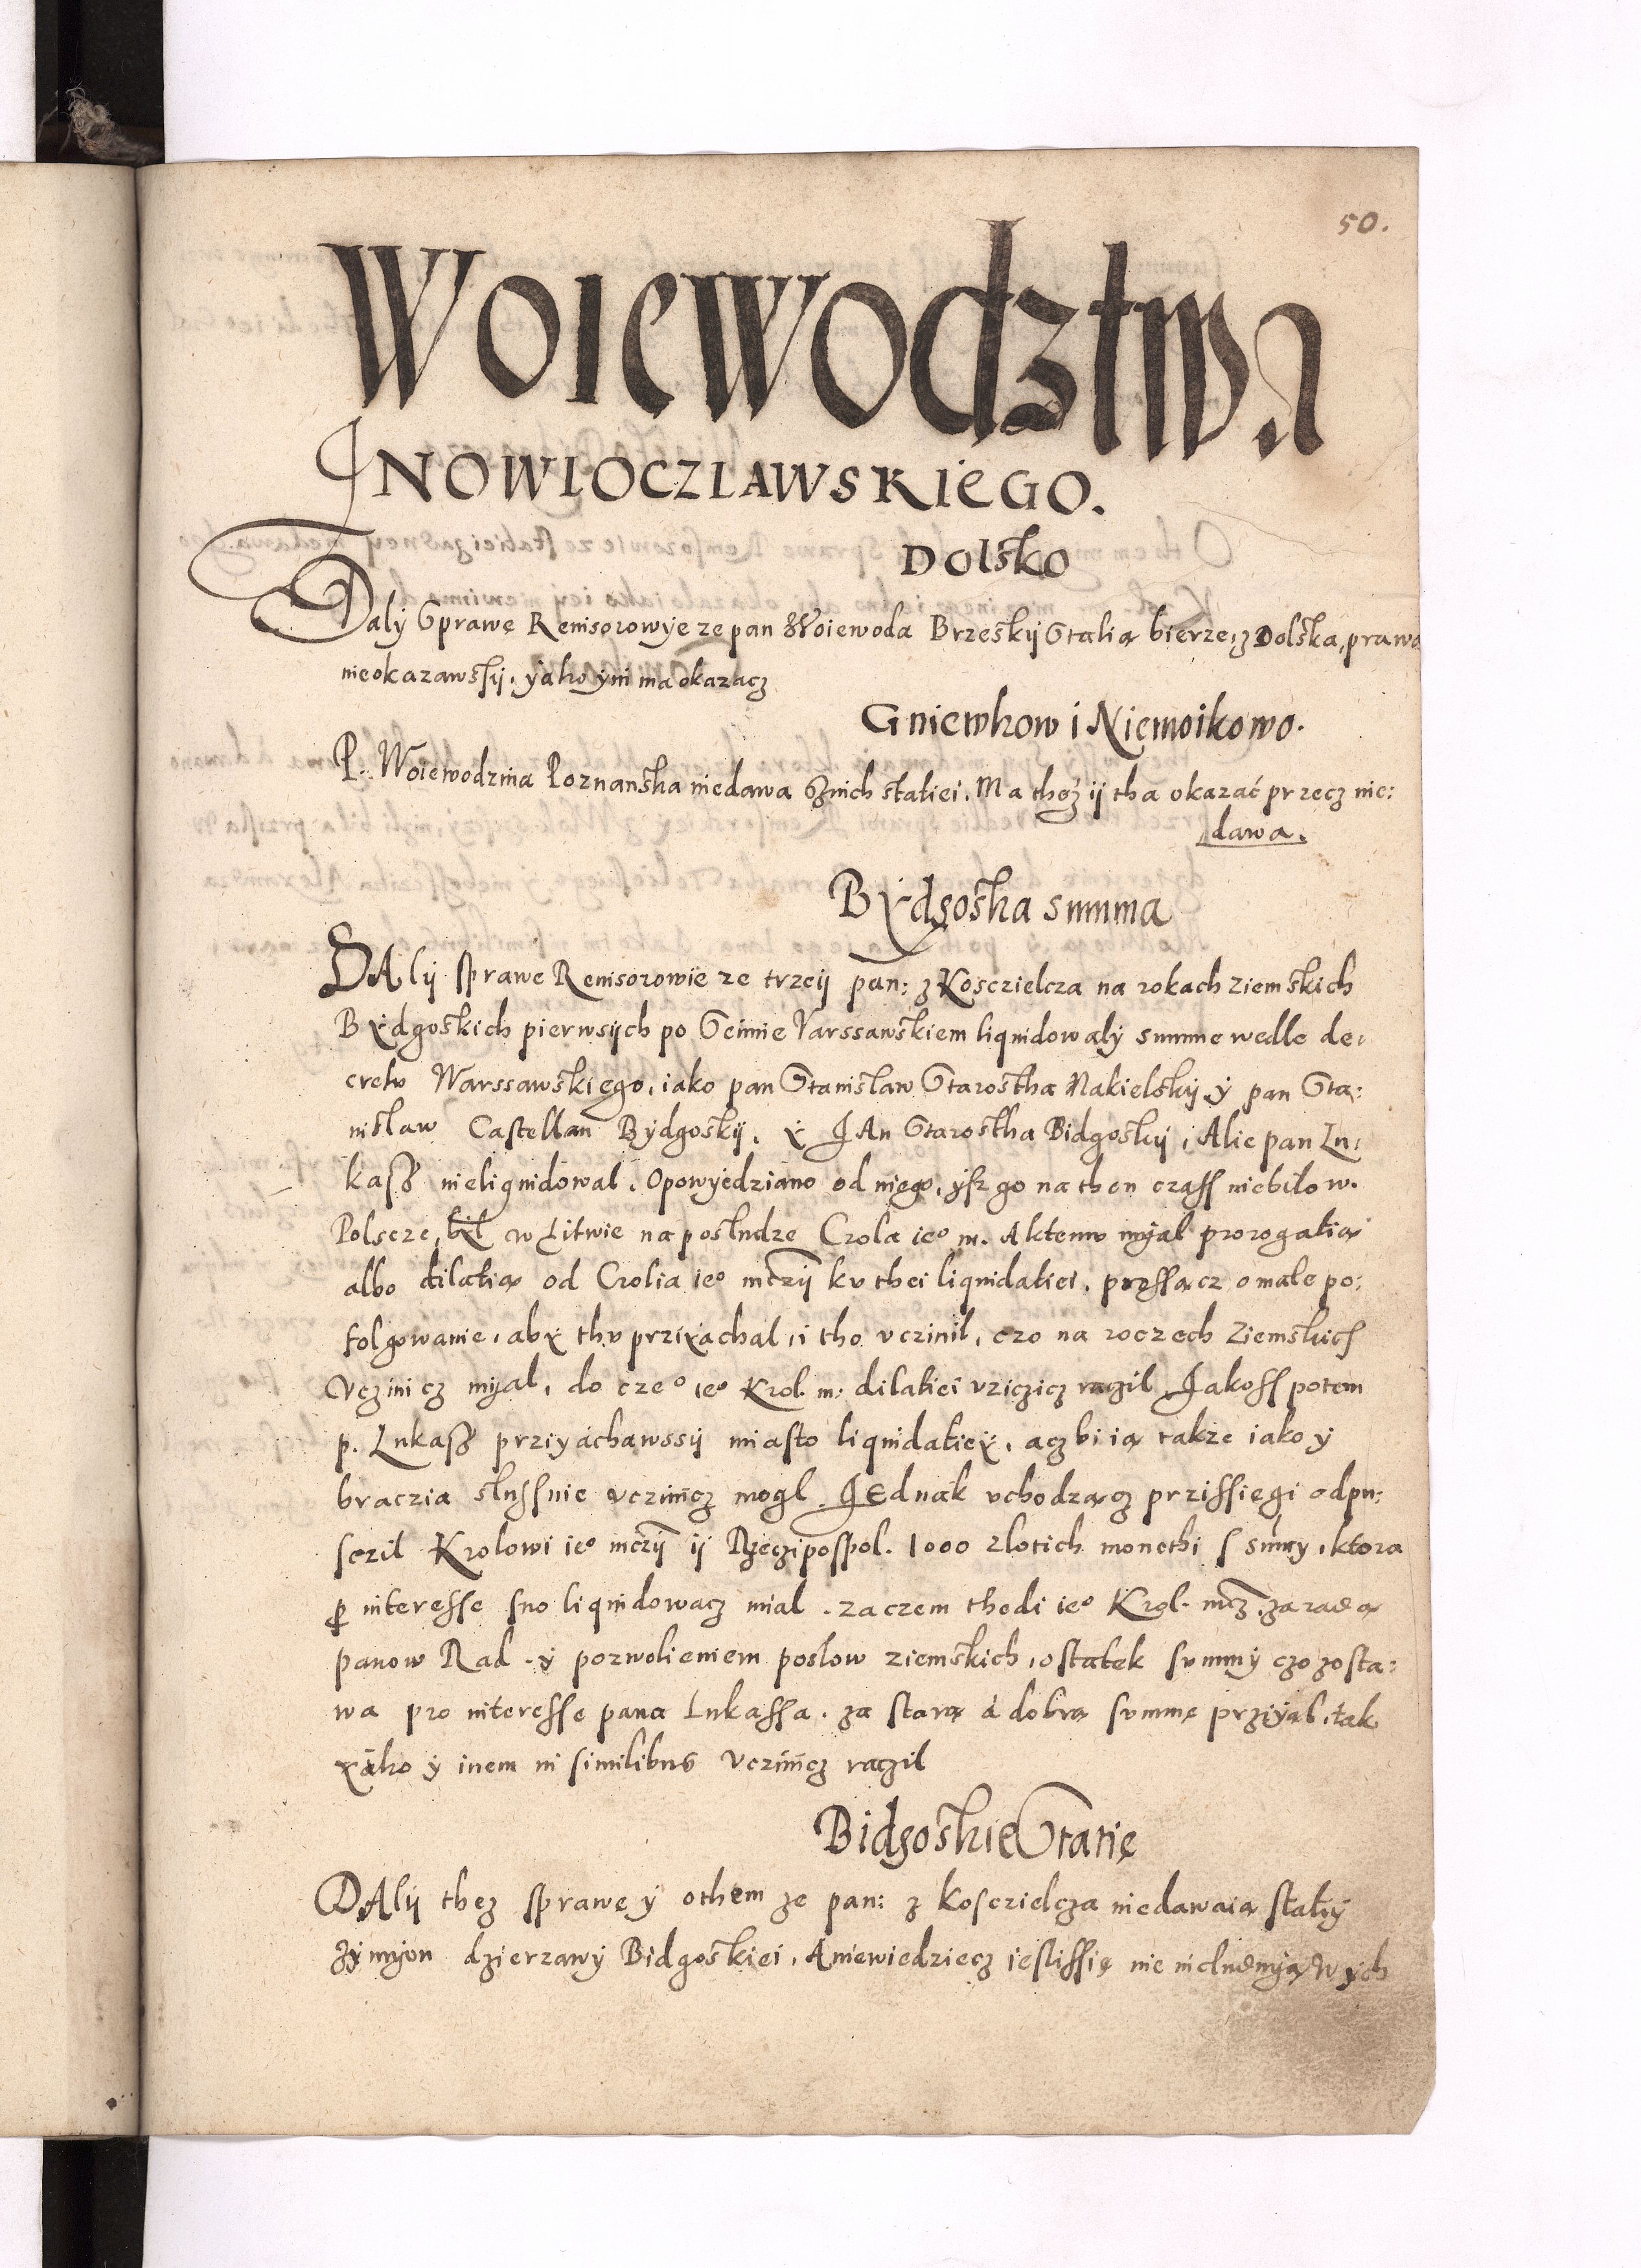 50.
Woiewodztwa
Inowloczlawskiego.
Dolsko
Daly Sprawe Remisorowye ze pan Woiewoda Brzeskij Stalią bierze, z Dolska, prawa
nieokazawssij, yako ym ma okazacz
Gniewkow i Niemoikowo.
P. Woiewodzina Poznanska niedawa z nich statiei. Ma thez ij tha okazać przecz nie:
dawa.
Bydgoska summa
DAly sprawe Remisorowie ze trzeij pan: z Kosczielcza na rokach ziemskich
Bydgoskich pierwsych po Seimie Varssawskiem liquidowaly summe wedle de:
cretu Warssawskiego, iako pan Stanislaw Starostha Nakielskij y pan Sta:
nislaw Castellan Bydgoskij, y JAn Starostha Bidgoskij, Alie pan Lu:
kass nieliquidowal. Opowyedziano od niego, ysz go na then czass niebilo w.
Polscze, bil w Litwie na posludze Crola ieo m. Aktemu myal prorogatią
albo dilatią od Crolia ieo mczij ku thei liquidatiei, prossącz o male po:
folgowanie, aby thu przyiachal, i tho uczinil, czo na roczech Ziemskich
Uczinicz myal, do czeo ieo Krol. m: dilatiei uziczicz raczil Jakoss potem
p. Lukass prziyachawssij miasto liquidatiey, acz bi ią takze iako y
braczia slussnie uczinicz mogl. JEdnak uchodzącz przissiegi odpu:
sczil Krolowi ieo mczij ij Rzeczipospol. 1000 zlotich monethi s sumy, ktora
p interesse suo liquidowacz mial. zaczem thedi ieo Krol. mcz. za radą
panow Rad. y pozwolieniem poslow ziemskich, ostatek summy czo zosta:
wa pro interesse pana Lukassa. za starą a dobrą summę prziyal, tak
yako y inem in similibus Uczinicz raczil
Bidgoskie Statie
DAly thez sprawe y othem ze pan: z Kosczielcza niedawaią statiy
Z ymyon dzierzawy Bidgoskiei, A niewiedziecz ieslissie nie includuyą w ych